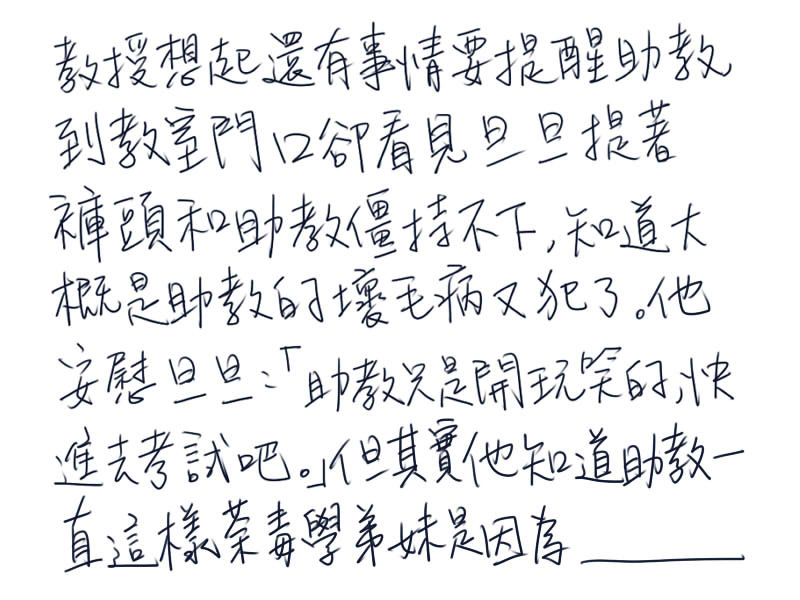 教授想起還有事情要提醒助教
到教室門口卻看見旦旦提著
褲頭和助教僵持不下,知道大
概是助教的壞毛病又犯了。他
安慰旦旦:「助教只是開玩笑的,快
進去考試吧。」但其實他知道助教一
直這樣荼毒學弟妹是因為______